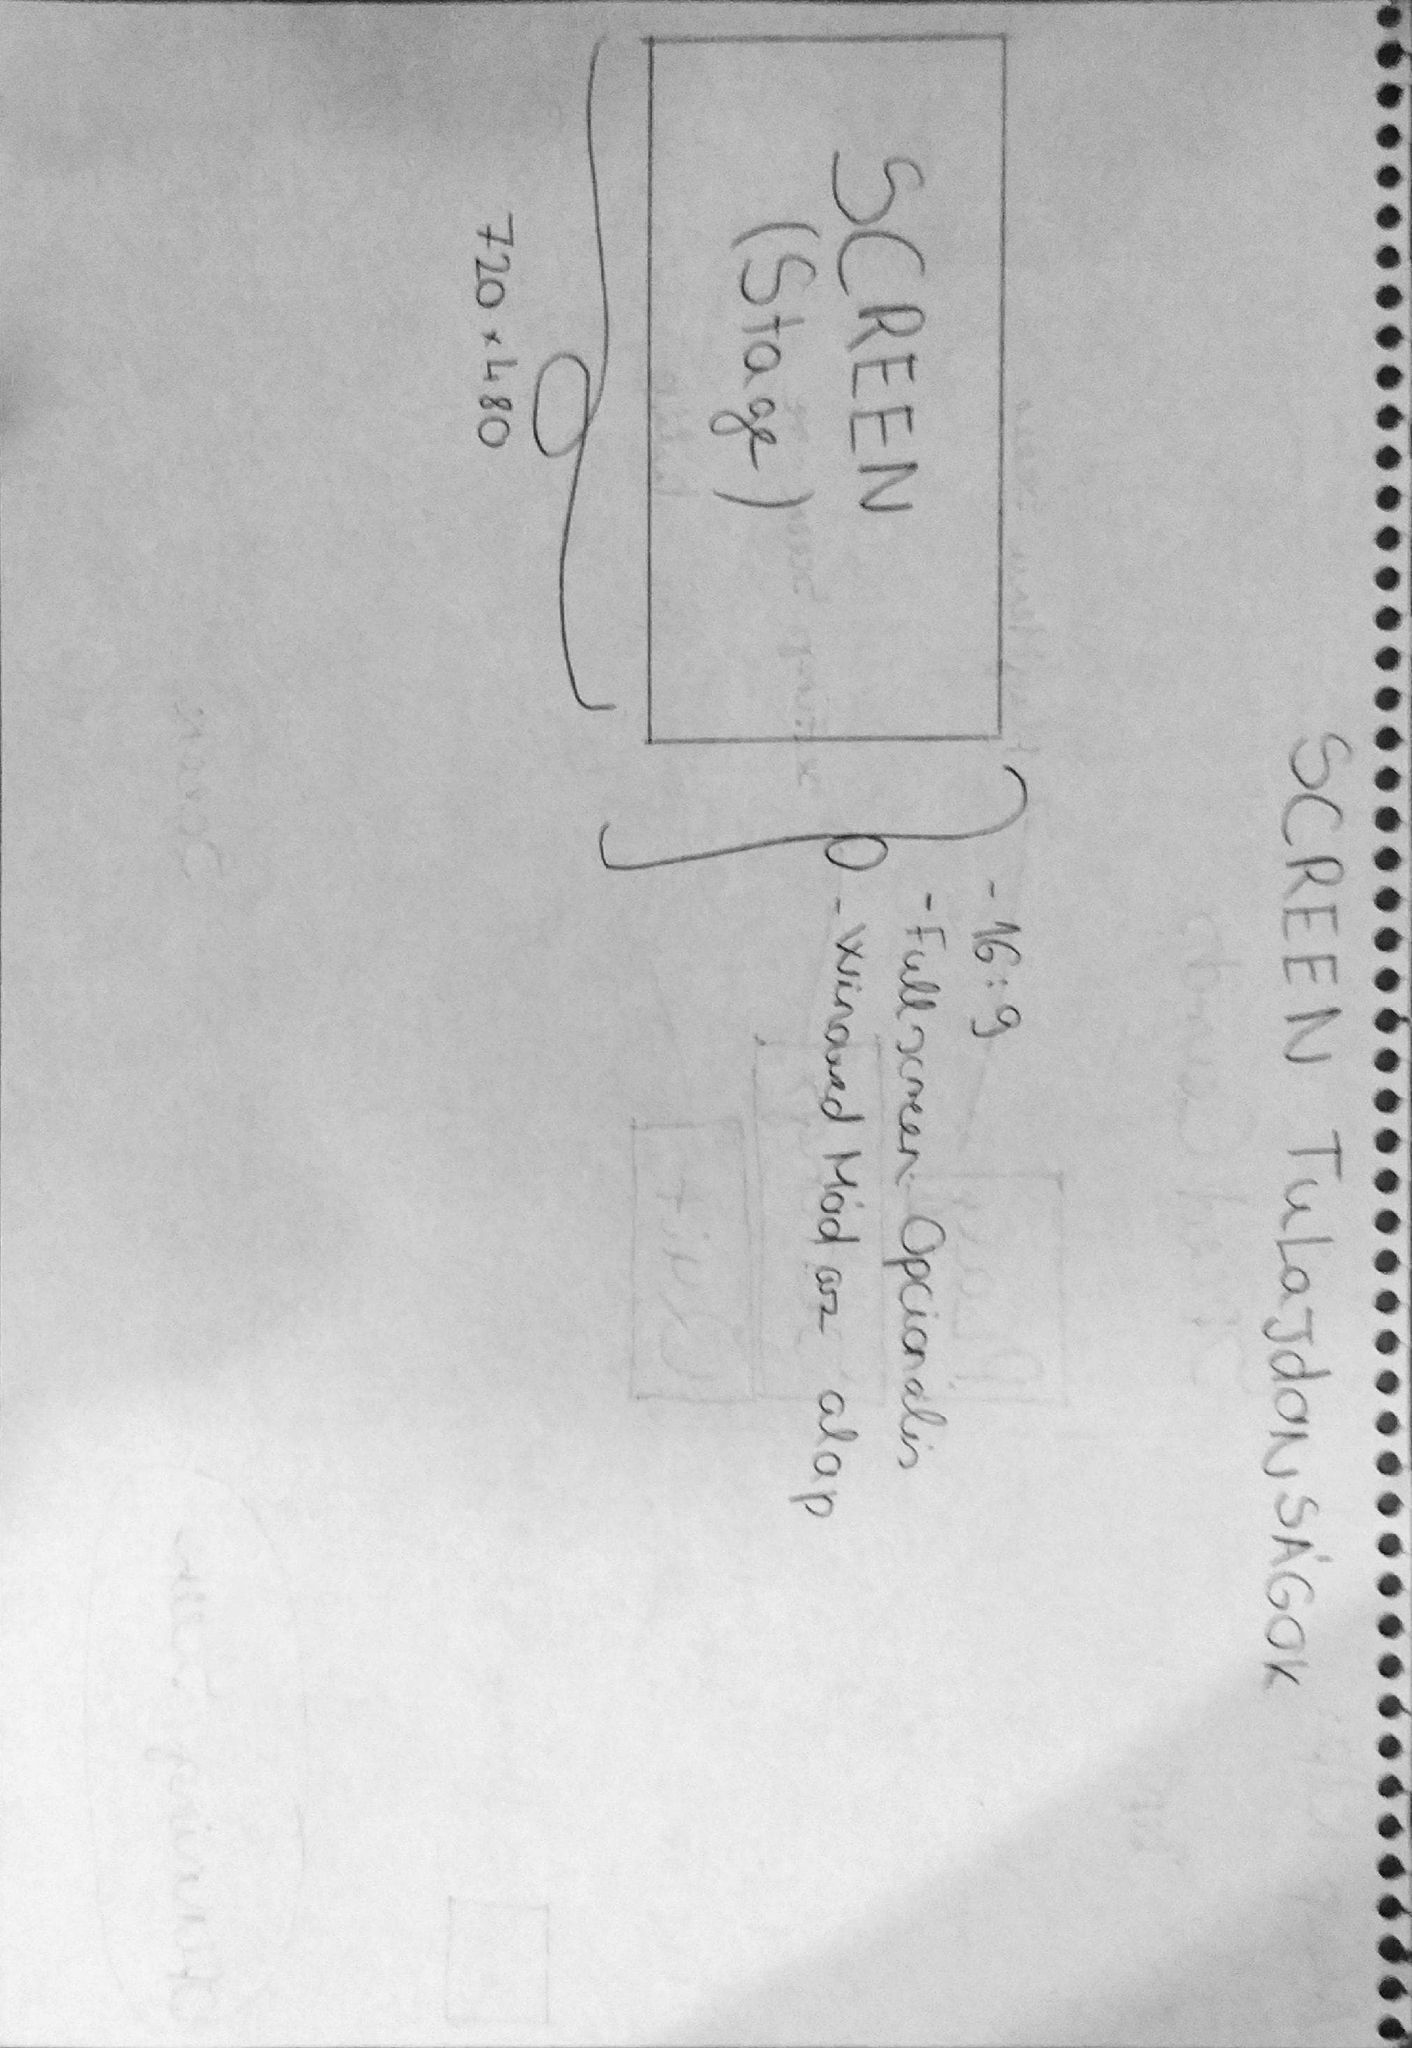 SCREEN TuLaJdoNSÁGOK
SCREEN
(Stage)
- 16:9
- Fullscreen: Opcionális
- Winowed Mód az alap
720x480